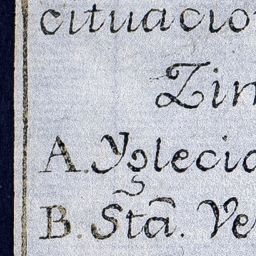 cituacio
Zin
A. Yglecia
B. Sta. Ve